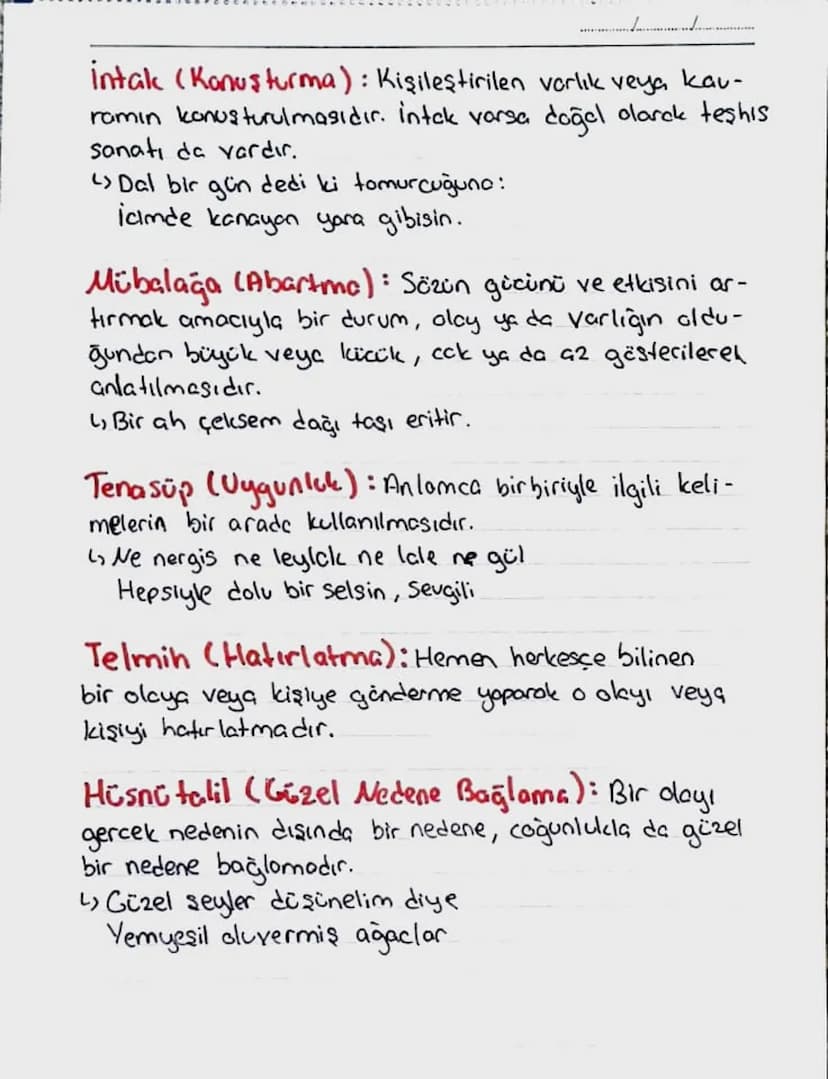 İntak (Konuşturma): Kişileştirilen varlık veya kav-
ramın konuşturulmasıdır. İntak varsa doğal olarak teşhis
sanatı da vardır.
↳ Dal bir gün dedi ki tomurcuğuna:
İçimde kanayan yara gibisin.
Mübalağa (Abartma): Sözün gücünü ve etkisini ar-
tırmak amacıyla bir durum, olay ya da varlığın oldu-
ğundan büyük veya küçük, çok ya da az gösterilerek
anlatılmasıdır.
↳ Bir ah çeksem dağı taşı eritir.
Tenasüp (Uygunluk): Anlamca birbiriyle ilgili keli-
melerin bir arada kullanılmasıdır.
↳ Ne nergis ne leylak ne lale ne gül
Hepsiyle dolu bir selsin, Sevgili
Telmih (Hatırlatma): Hemen herkesçe bilinen
bir olaya veya kişiye gönderme yaparak o olayı veya
kişiyi hatırlatmadır.
Hüsnü talil (Güzel Nedene Bağlama): Bir olayı
gerçek nedenin dışında bir nedene, çoğunlukla da güzel
bir nedene bağlamadır.
↳ Güzel şeyler düşünelim diye
Yemyeşil oluvermiş ağaçlar